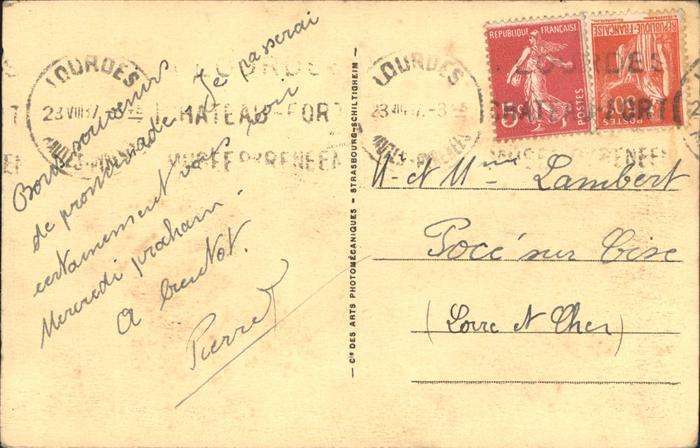 Bons souvenirs
de promenade. Je passerai
certainement vous voir
Mercredi prochain.
A bientot.
Pierrot
LOURDES
23 VIII 37
LOURDES
CHATEAU-FORT
MUSEE PYRENEEN
Cie DES ARTS PHOTOMÉCANIQUES - STRASBOURG-SCHILTIGHEIM
LOURDES
LOURDES
CHATEAU-FORT
MUSEE PYRENEEN
REPUBLIQUE FRANÇAISE
POSTES
POSTES
M et Mme Lambert
Pocé sur Cisse
(Loire et Cher)